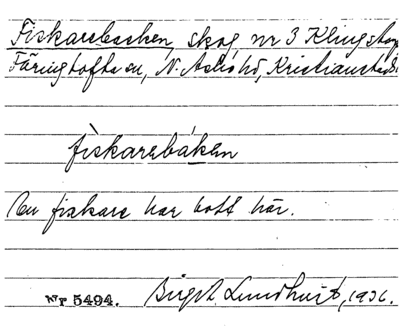 Fiskarebacken, skog nr 3 Klingstorp
Färingtofta sn, N. Åsbo hd, Kristianstads
fìskarebákẹn
En fiskare har bott här.
Nr 5494. Birgit Lundhuist, 1936.